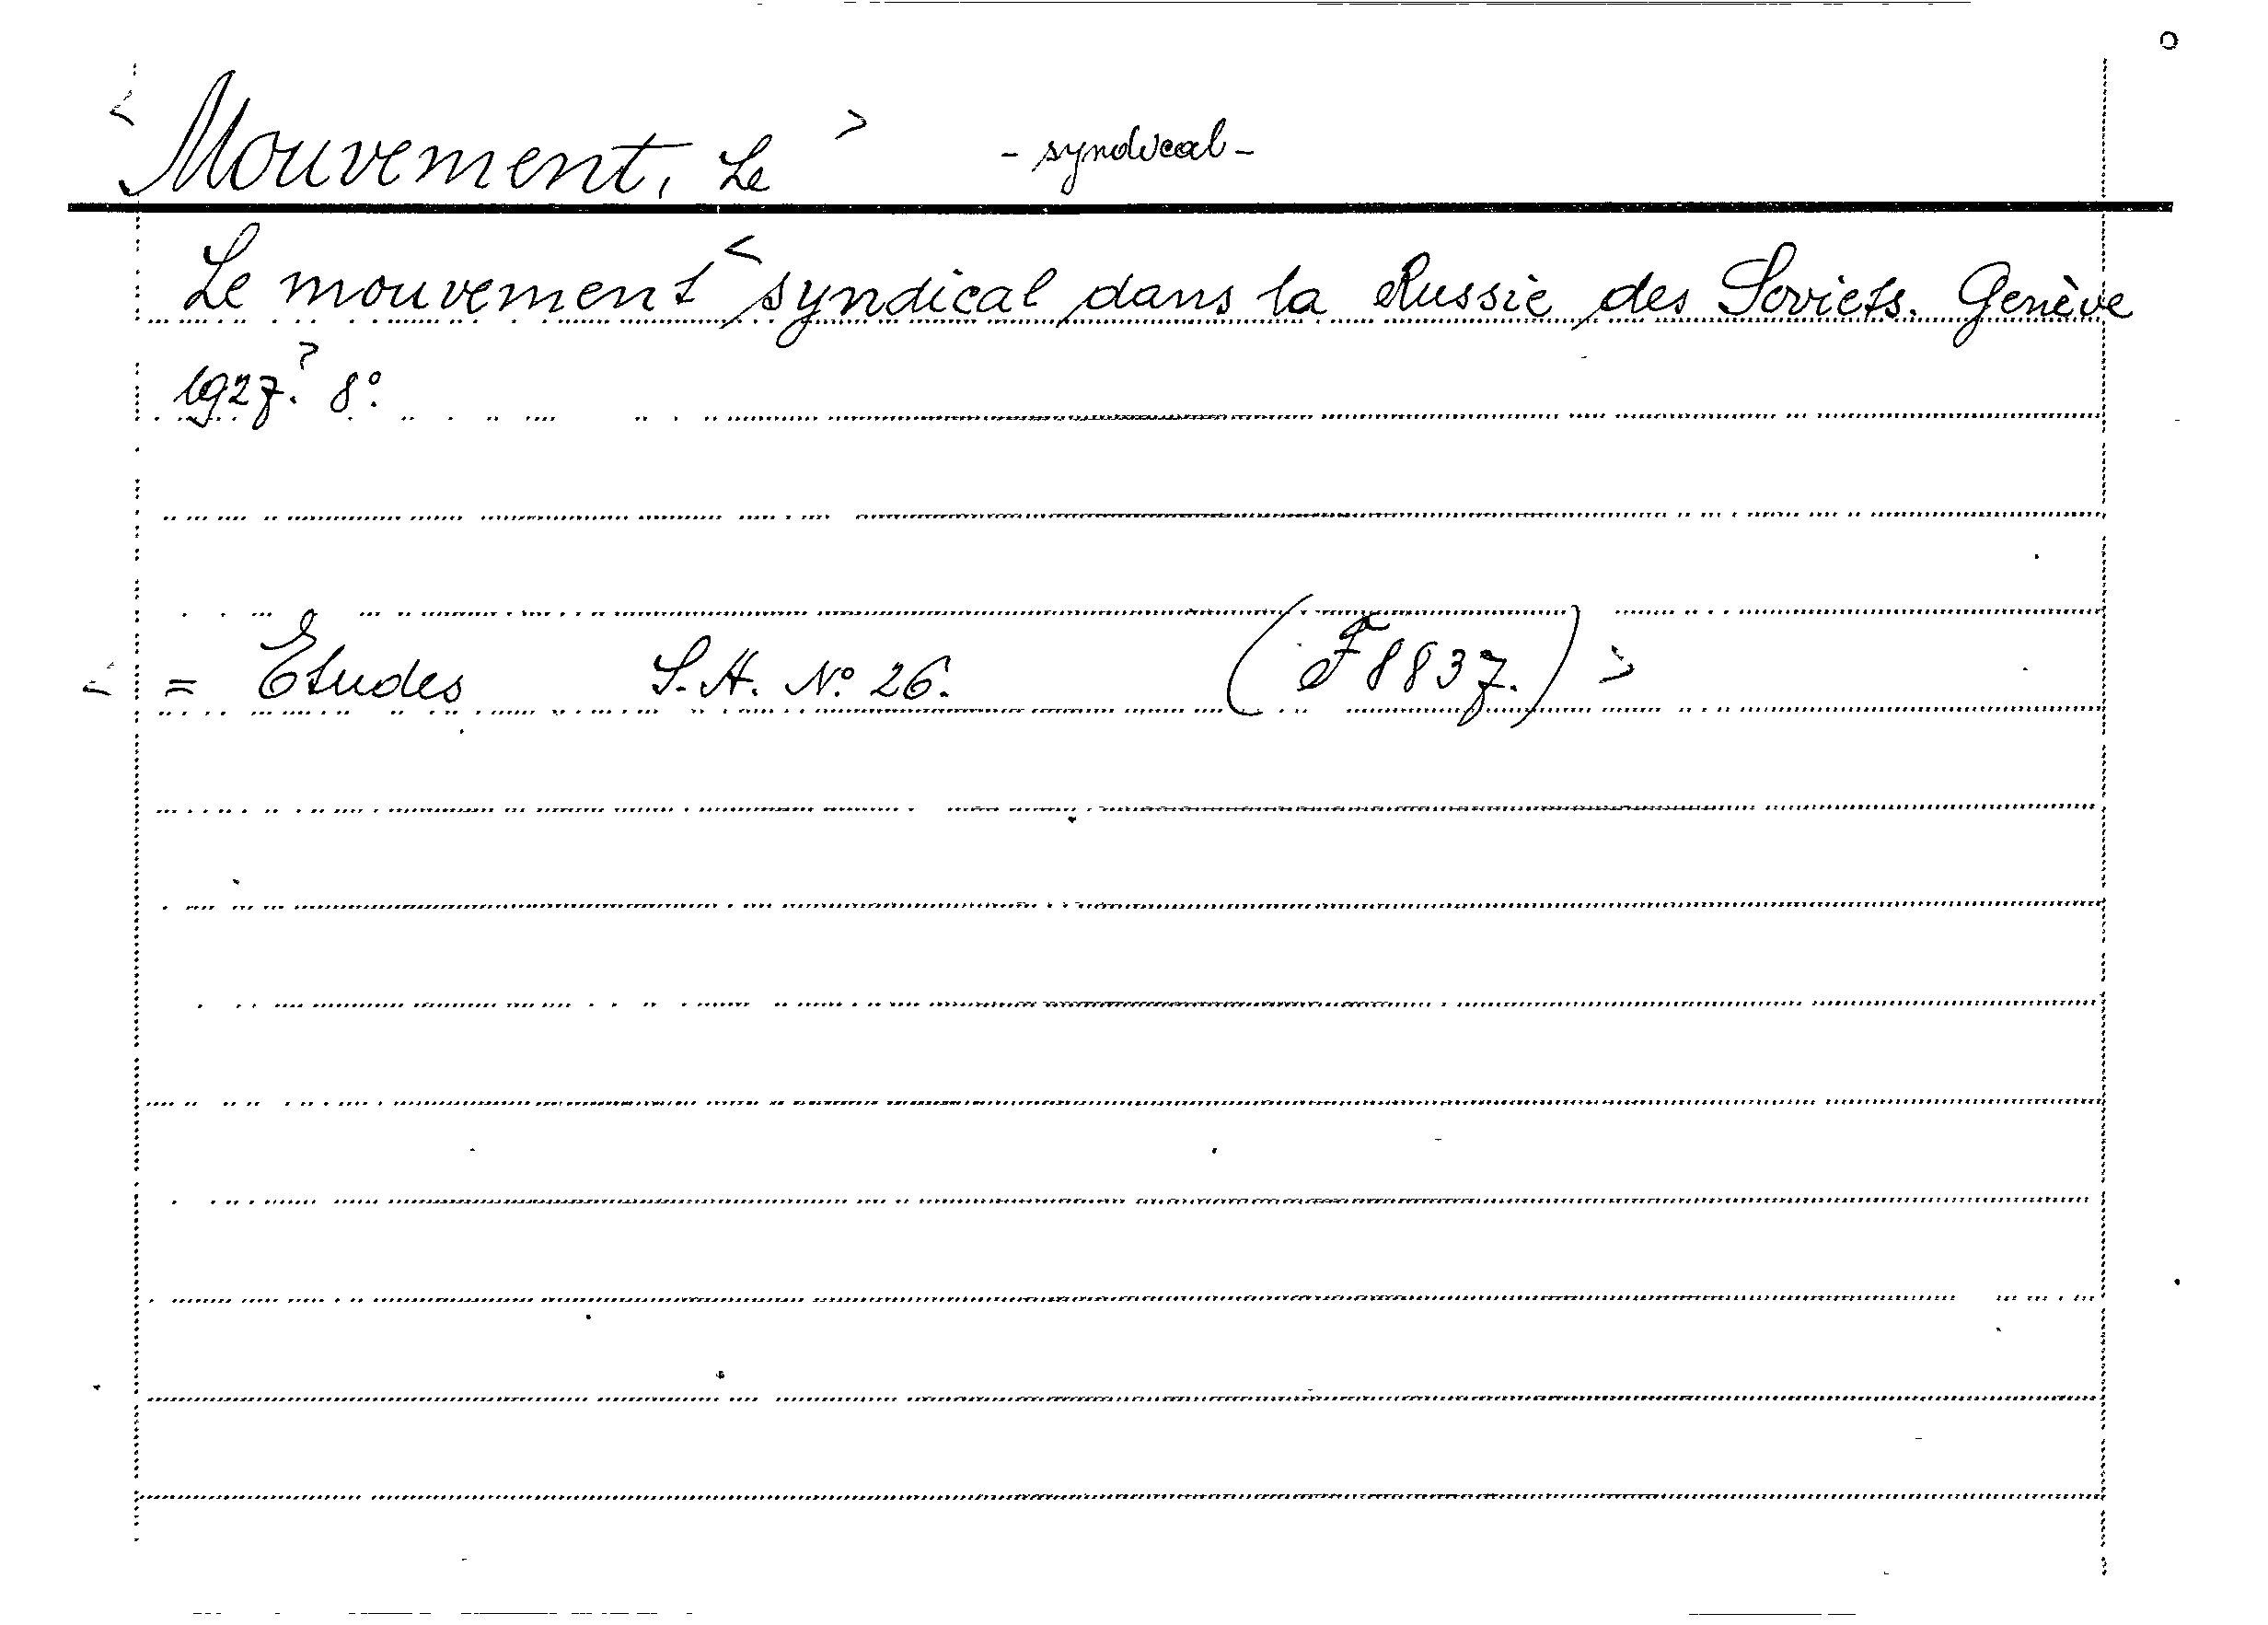 < Mouvement, Le > - syndical -
Le mouvement < syndical dans la Russie des Soviets. Genève
1927. > 8°.
< = Etudes S.A. N° 26. (F 8837.) >